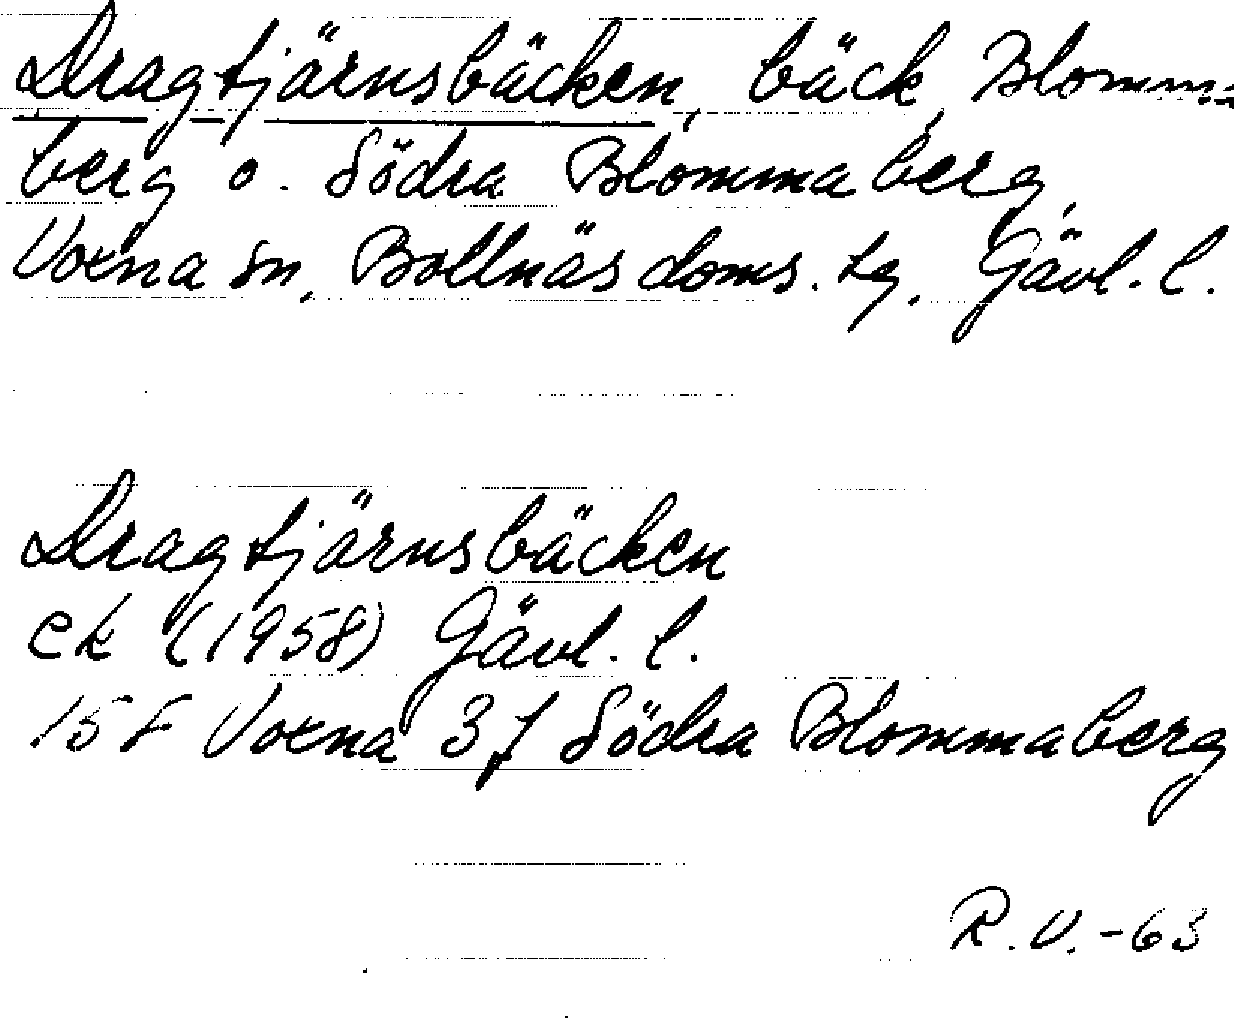 Dragtjärnsbäcken, bäck, Blomma-
berg o. Södra Blommaberg,
Voxna sn, Bollnäs doms. tg, Gävl. l.
Dragtjärnsbäcken
ek (1958) Gävl. l.
15 F Voxna 3 f Södra Blommaberg
R.V. -63